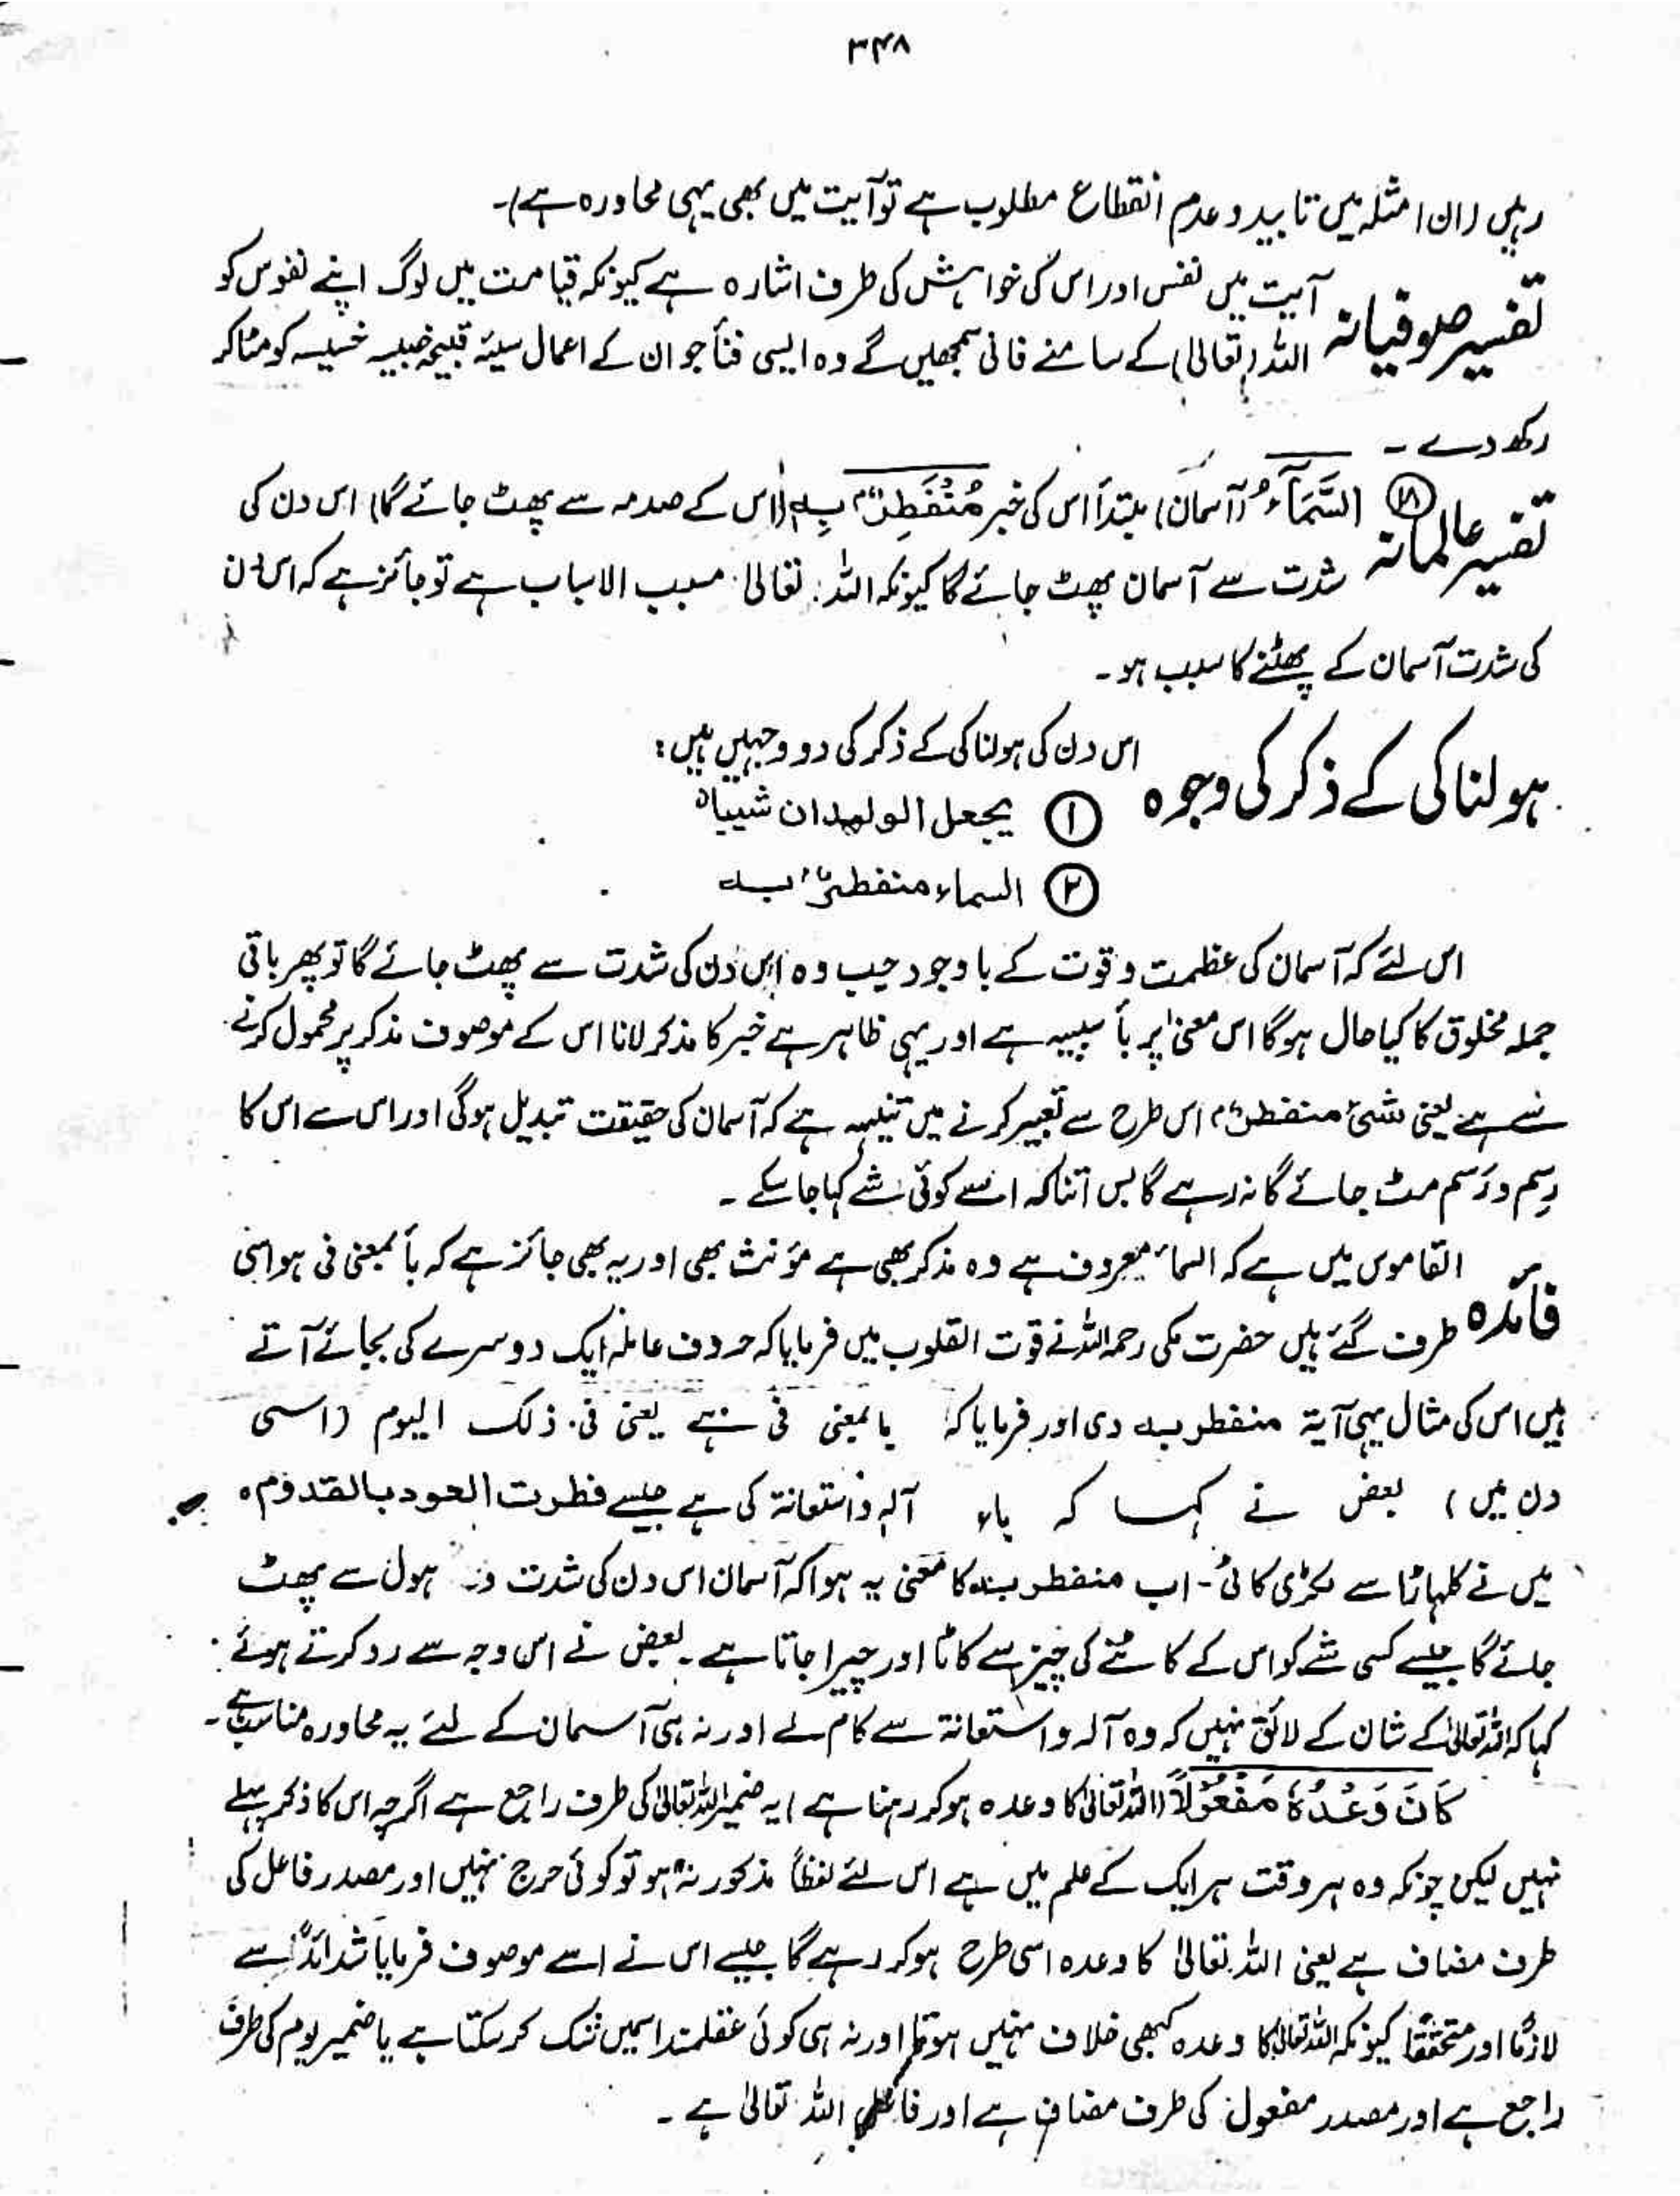 ۳۴۸
رہیں (ان امثلہ میں تابید و عدم انقطاع مطلوب ہے تو آیت میں بھی یہی محاورہ ہے)۔
تفسیر صوفیانہ آیت میں نفس اور اس کی خواہش کی طرف اشارہ ہے کیونکہ قیامت میں لوگ اپنے نفوس کو
اللہ (تعالیٰ) کے سامنے فانی سمجھیں گے وہ ایسی فنأ جو ان کے اعمال سیئہ قبیحہ خبیسہ کو مٹا کر
رکھ دے ۔
تفسیر عالمانہ ⑱ السَّمَآءُ (آسمان) مبتدأ اس کی خبر مُنْفَطِرٌۢ بِهٖ (اس کے صدمہ سے پھٹ جائے گا) اس دن کی
شدت سے آسمان پھٹ جائے گا کیونکہ اللہ تعالیٰ مسبب الاسباب ہے تو جائز ہے کہ اس دن
کی شدت آسمان کے پھٹنے کا سبب ہو ۔
ہولناکی کے ذکر کی وجوہ اس دن کی ہولناکی کے ذکر کی دو وجہیں ہیں :
① یجعل الولدان شیبا۵
② السماء منفطرٌۢ بہ
اس لئے کہ آسمان کی عظمت و قوت کے باوجود جب وہ اس دن کی شدت سے پھٹ جائے گا تو پھر باقی
جملہ مخلوق کا کیا حال ہوگا اس معنیٰ پر بأ سببیہ ہے اور یہی ظاہر ہے خبر کا مذکر لانا اس کے موصوف مذکر پر محمول کرنے
سے ہے یعنی شیئ منفطرٌ اس طرح سے تعبیر کرنے میں تنبیہہ ہے کہ آسمان کی حقیقت تبدیل ہوگی اور اس سے اس کا
رسم و رسم مٹ جائے گا نہ رہے گا بس اتنا کہ اسے کوئی شے کہا جا سکے ۔
فائدہ القاموس میں ہے کہ السمأ معروف ہے وہ مذکر بھی ہے مؤنث بھی اور یہ بھی جائز ہے کہ بأ بمعنی فی ہو اسی
طرف گئے ہیں حضرت مکی رحمہ اللہ نے قوت القلوب میں فرمایا کہ حروف عاملہ ایک دوسرے کی بجائے آتے
ہیں اس کی مثال یہی آیۃ منفطر بہ دی اور فرمایا کہ با بمعنی فی ہے یعنی فی ذلک الیوم (اسی
دن میں) بعض نے کہا کہ باء آلہ و استعانۃ کی ہے جیسے فطرت العود بالقدوم ۔
میں نے کلہاڑا سے لکڑی کاٹی ۔ اب منفطر بہ کا معنی یہ ہوا کہ آسمان اس دن کی شدت و ہول سے پھٹ
جائے گا جیسے کسی شے کو اس کے کاٹنے کی چیز سے کاٹا اور چیرا جاتا ہے ۔ بعض نے اس وجہ سے رد کرتے ہوئے
کہا کہ اللہ تعالیٰ کے شان کے لائق نہیں کہ وہ آلہ و استعانۃ سے کام لے اور نہ ہی آسمان کے لئے یہ محاورہ مناسب ہے ۔
كَانَ وَعْدُهٗ مَفْعُوْلًا (اللہ تعالیٰ کا وعدہ ہو کر رہنا ہے) یہ ضمیر اللہ تعالیٰ کی طرف راجع ہے اگرچہ اس کا ذکر پہلے
نہیں لیکن چونکہ وہ ہر وقت ہر ایک کے علم میں ہے اس لئے لفظاً مذکور نہ ہو تو کوئی حرج نہیں اور مصدر فاعل کی
طرف مضاف ہے یعنی اللہ تعالیٰ کا وعدہ اسی طرح ہو کر رہے گا جیسے اس نے اسے موصوف فرمایا شدائد سے
لازمًا اور متحققًا کیونکہ اللہ تعالیٰ کا وعدہ کبھی خلاف نہیں ہوتا اور نہ ہی کوئی عقلمند اسمیں شک کر سکتا ہے یا ضمیر یوم کی طرف
راجع ہے اور مصدر مفعول کی طرف مضاف ہے اور فاعل اللہ تعالیٰ ہے ۔